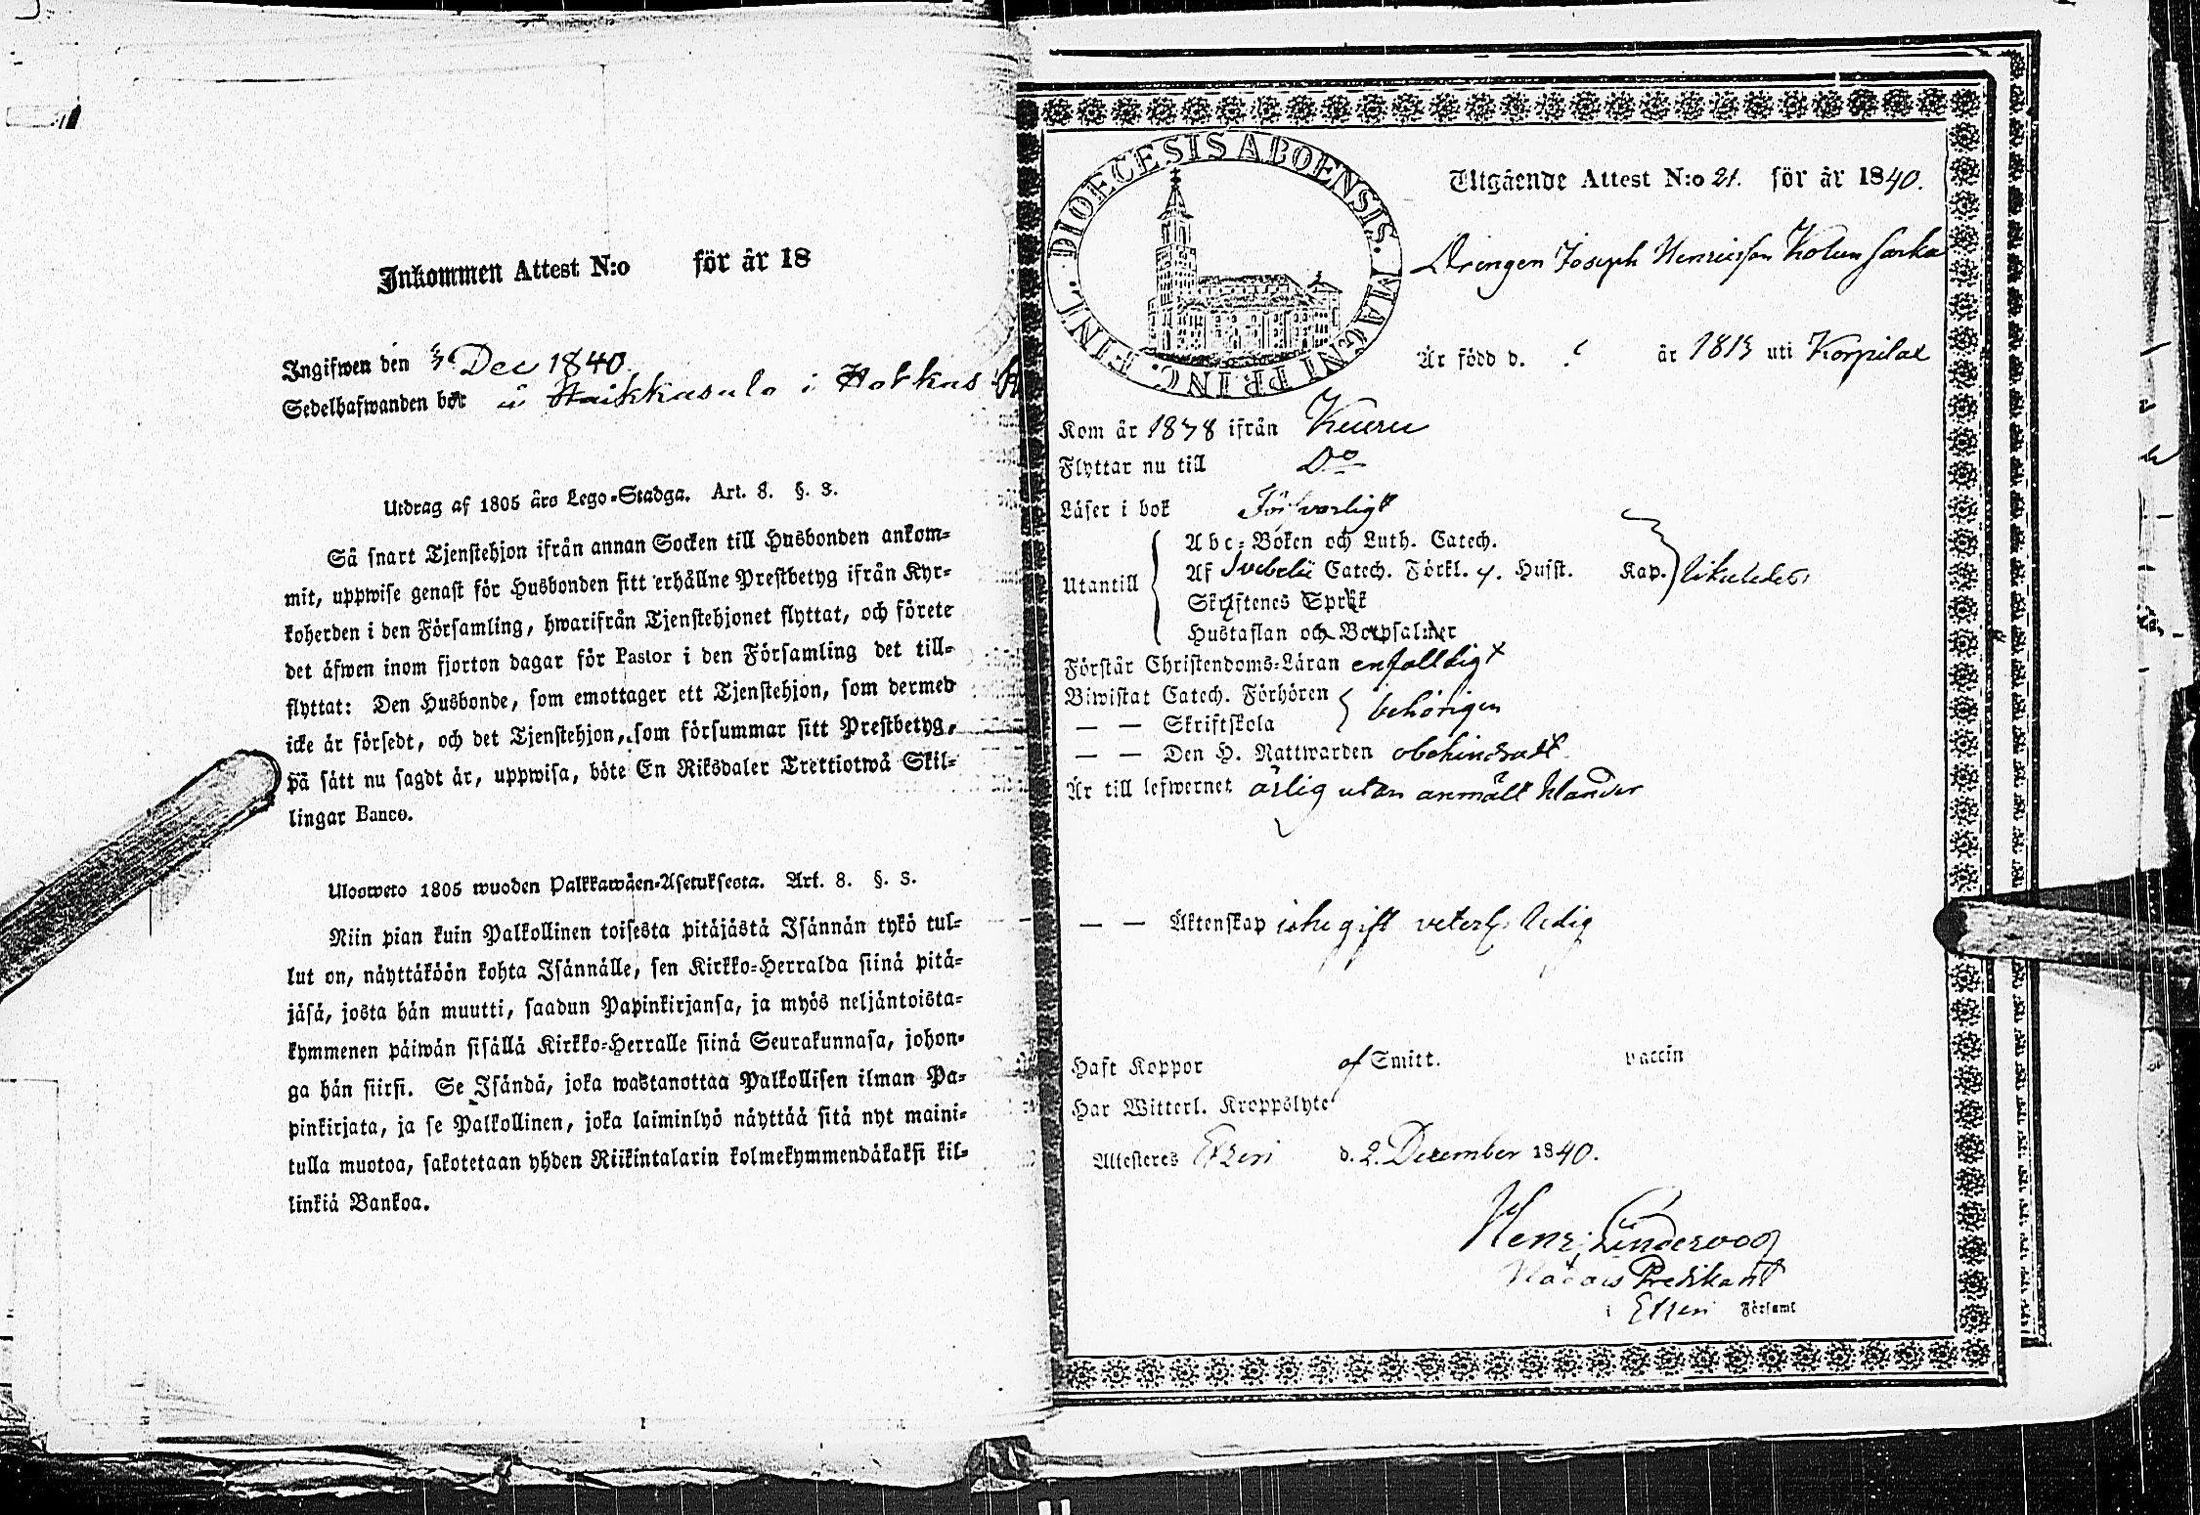 Inkommen Attest N:o för år 18
Ingifwen den 3 Dec 1840.
Sedelhafwanden bör i
Utdrag af 1805 års Lego-Stadga. Art. 8. §. 3.
Så snart Tjenstehjon ifrån annan Socken till Husbonden ankom-
mit, uppwise genast för Husbonden sitt erhållne Prestbetyg ifrån Kyr-
koherden i den Församling, hwarifrån Tjenstehjonet flyttat, och förete
det äfwen inom fjorton dagar för Pastor i den Församling det till-
flyttat: Den Husbonde, som emottager ett Tjenstehjon, som dermed
icke är försedt, och det Tjenstehjon, som försummar sitt Prestbetyg,
på sätt nu sagdt är, uppwisa, böte En Riksdaler Trettiotwå Skil-
lingar Banco.
Ulosweto 1805 wuoden Palkkawäen-Asetuksesta. Art. 8. §. 3.
Niin pian kuin Palkollinen toisesta pitäjästä Isännän tykö tul-
lut on, näyttäköön kohta Isännälle, sen Kirkko-Herralda siinä pitä-
jäsä, josta hän muutti, saadun Papinkirjansa, ja myös neljäntoista-
kymmenen päiwän sisällä Kirkko-Herralle siinä Seurakunnasa, johon-
ga hän siirsi. Se Isändä, joka wastanottaa Palkollisen ilman Pa-
pinkirjata, ja se Palkollinen, joka laiminlyö näyttää sitä nyt maini-
tulla muotoa, sakotetaan yhden Riikintalarin kolmekymmendäkaksi kil-
linkiä Bankoa.
DIOECESIS ABOENSIS. MAGNI PRINC. FINL.
Utgående Attest N:o 21. för år 1840.
Drengen Joseph Henricsson
Är född d. år 1813 uti Korpilax
Kom år 1838 ifrån Keuru
Flyttar nu till Do
Läser i bok Försvarligt
Utantill
Abc-Boken och Luth. Catech.
Af Svebelii Catech. Förkl. y. Husst. Kap. likaledes
Skriftenes Språk
Hustaflan och Botpsalmer
Förstår Christendoms-Läran enfalldigt
Biwistat Catech. Förhören
— — Skriftskola behörigen
— — Den H. Nattwarden obehindradt
Är till lefwernet ärlig utan anmält klander
— — Äktenskap icke gift veterl. ledig
Haft Koppor af Smitt. vaccin
Har Witterl. Kroppslyte
Attesteras Etzeri d. 2. December 1840.
Henr. Linderoog
Predikant
i Etzeri Församl